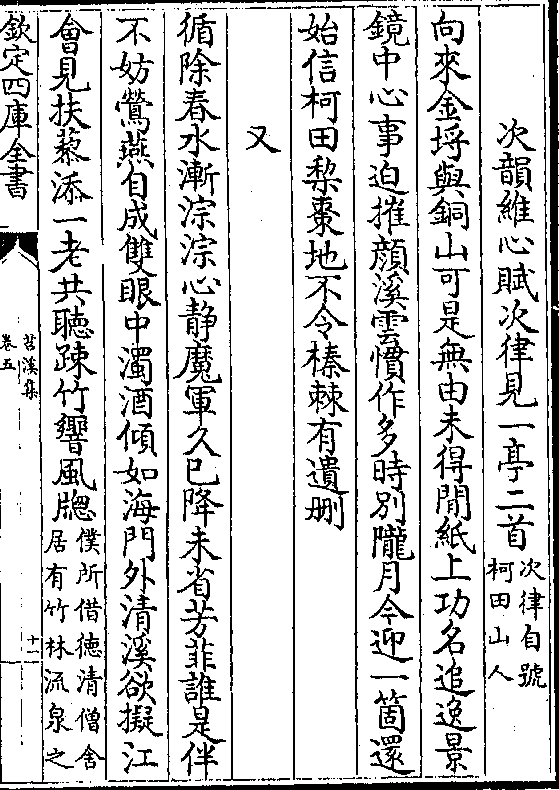 次韻維心賦次律見一亭二首次律自號
柯田山人
向來金埒與銅山可是無由未得閒紙上功名追逸景
鏡中心事迫摧顔溪雲慣作多時別隴月今迎一箇還
始信柯田梨棗地不令榛棘有遺刪
又
循除春水漸淙淙心静魔軍久已降未省芳菲誰是伴
不妨鶯燕自成雙眼中濁酒傾如海門外清溪欲擬江
會見扶藜添一老共聽疎竹響風牕僕所借德清僧舍
居有竹林流泉之
欽定四庫全書
苕溪集
卷五
十一